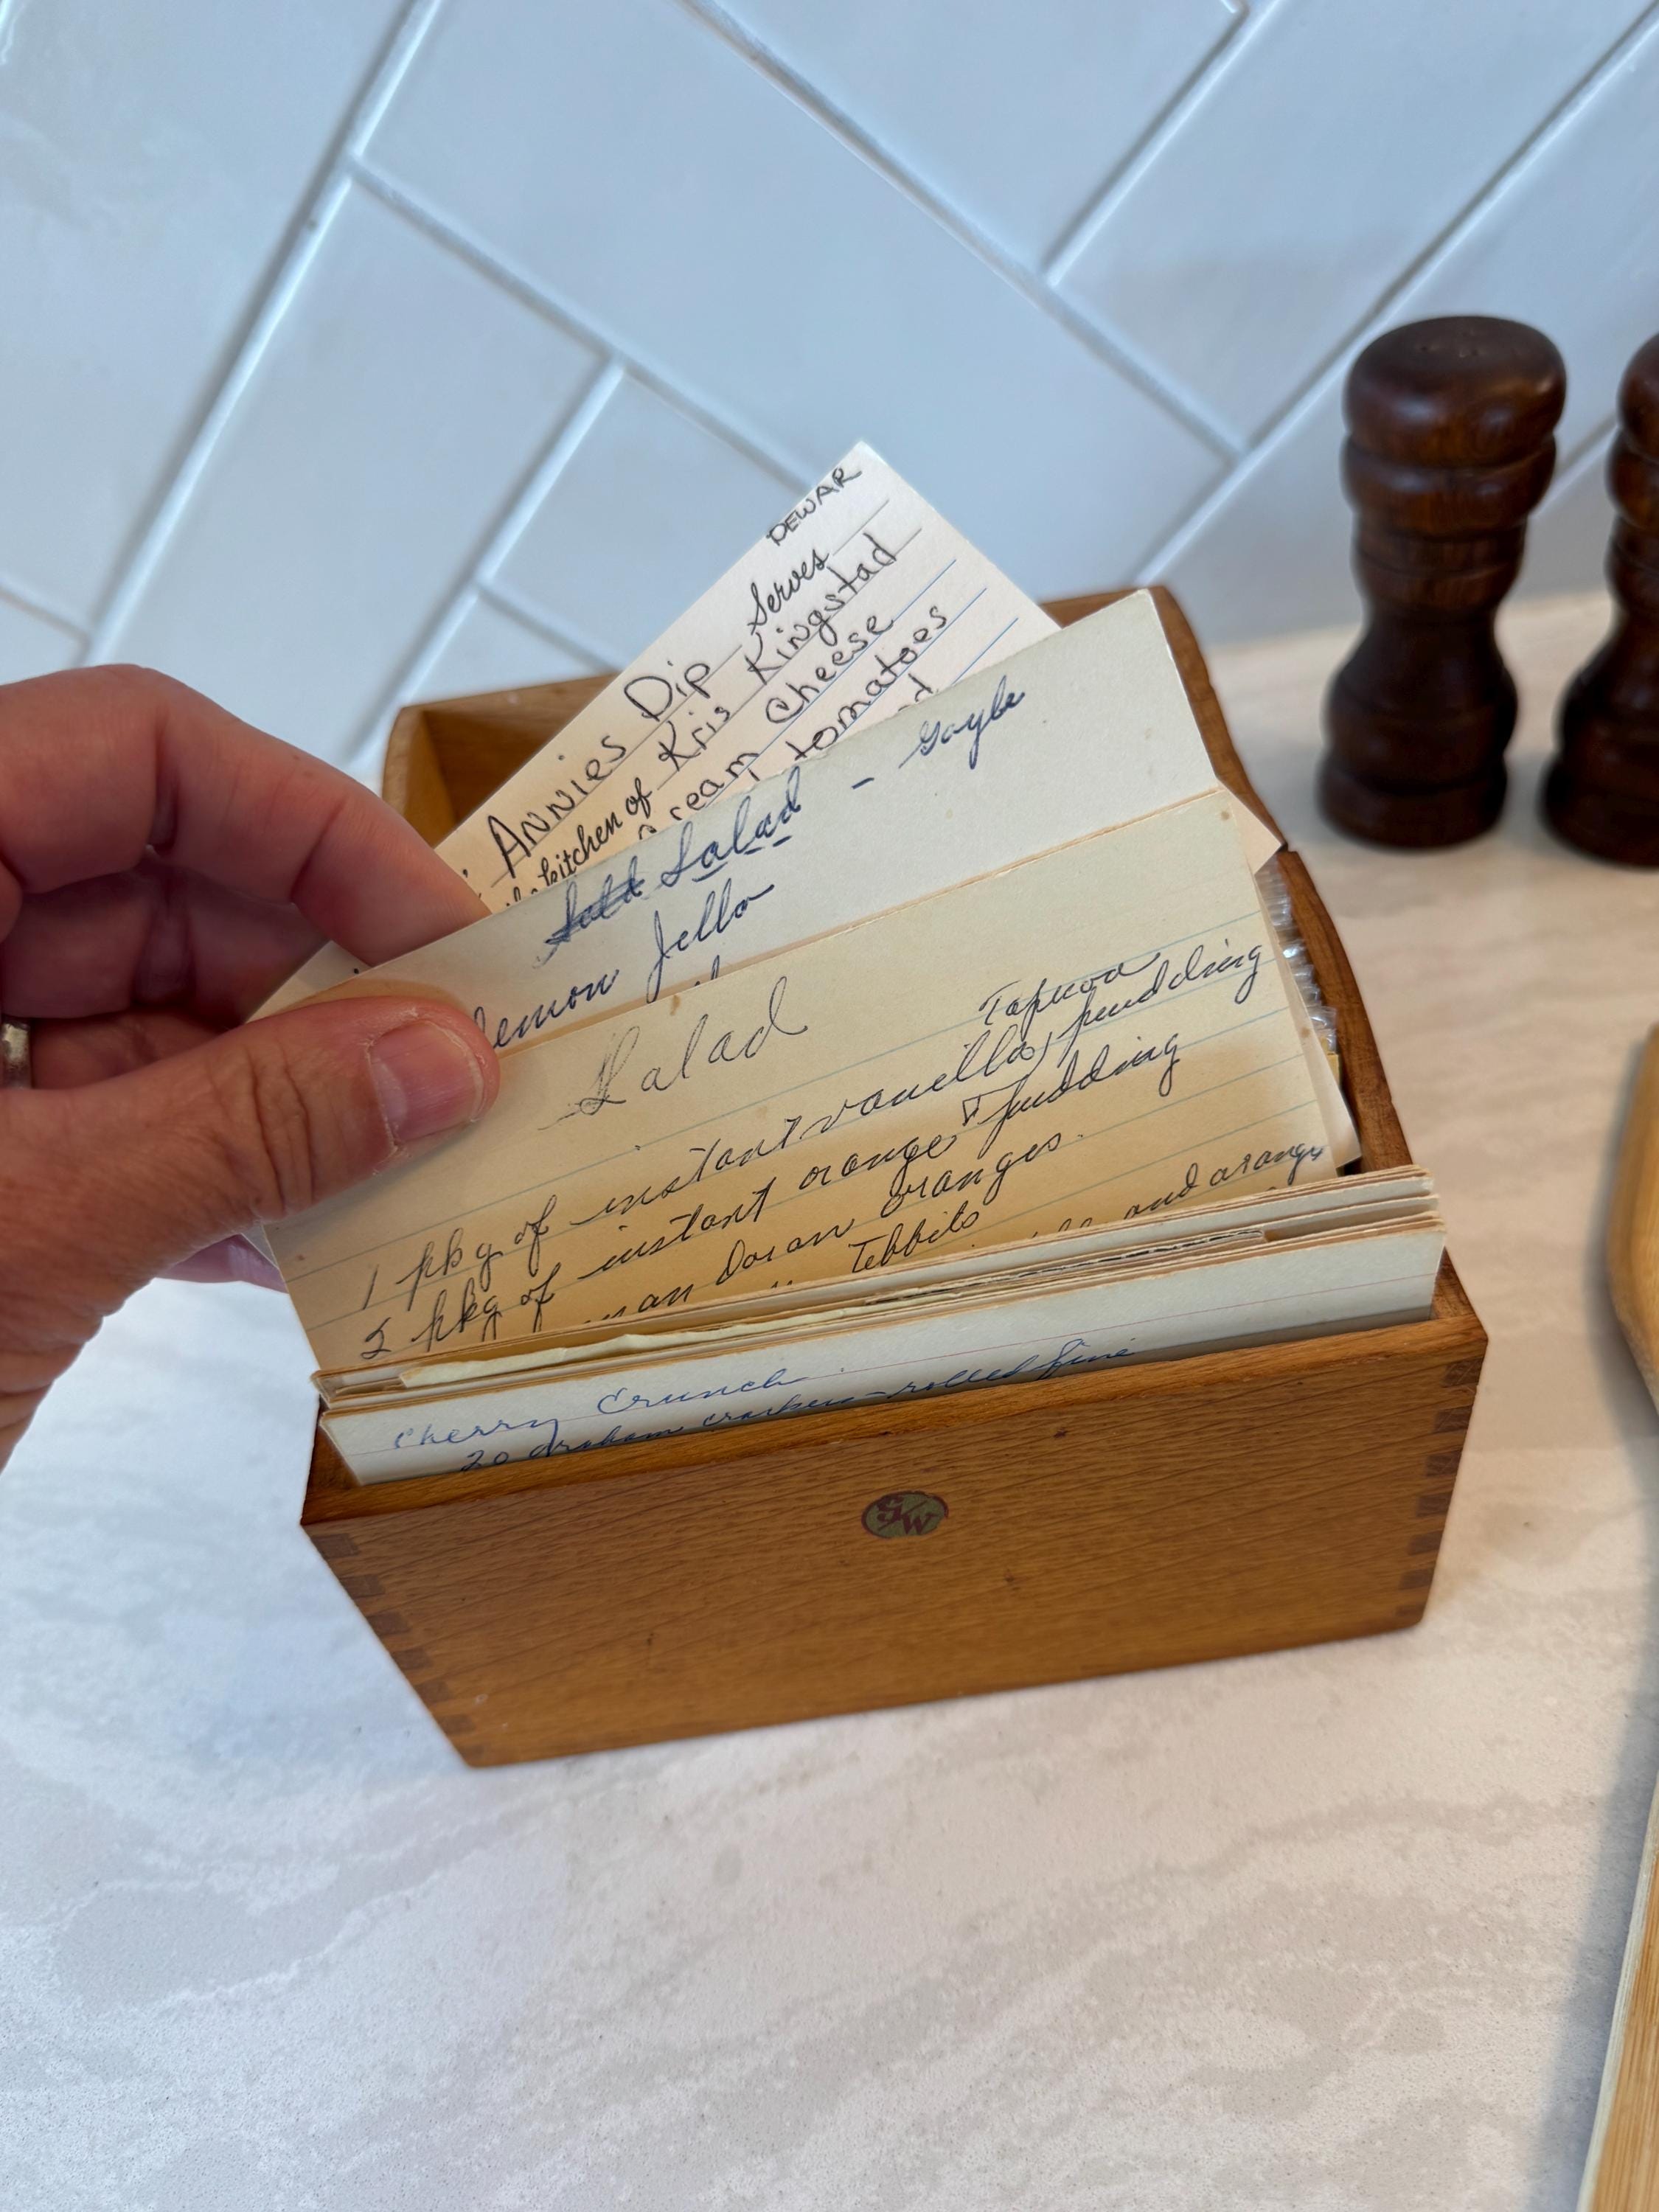 DEWAR
Annies Dip Serves
kitchen of Kris Kingstad
cream cheese
tomatoes
Salad - Gayle
lemon Jello
Salad
Tapioca
1 pkg of instant vanilla pudding
2 pkg of instant orange T pudding
oranges.
and orange
Cherry Crunch
20 graham crackers - rolled fine
S/W